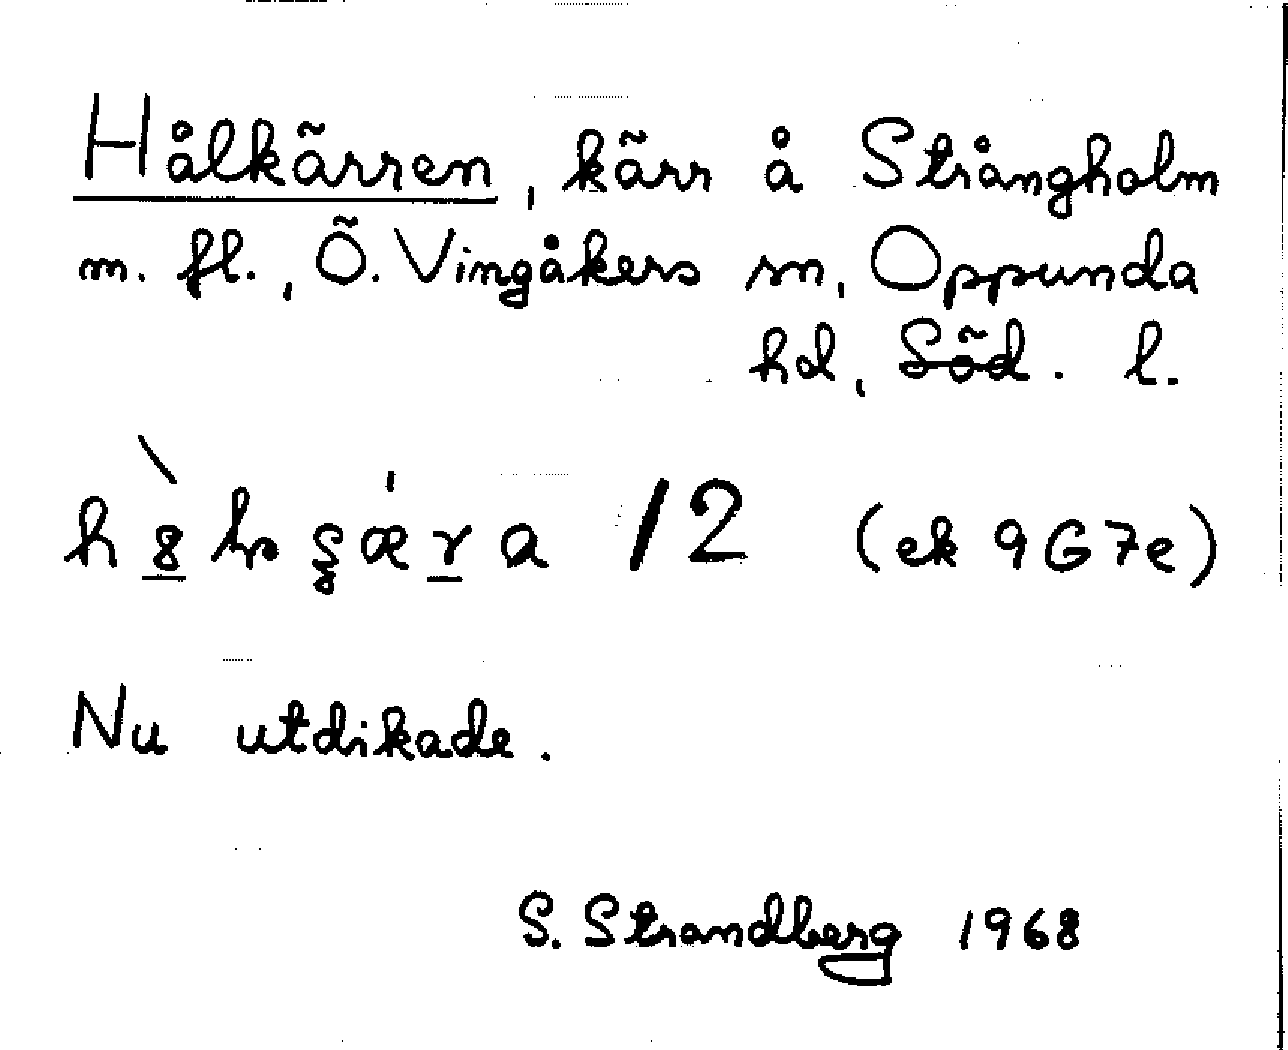 Hålkärren, kärr å Strångholm
m. fl., Ö. Vingåkers sn, Oppunda
hd, Söd. l.
/2 (ek 9G7e)
Nu utdikade.
S. Strandberg 1968